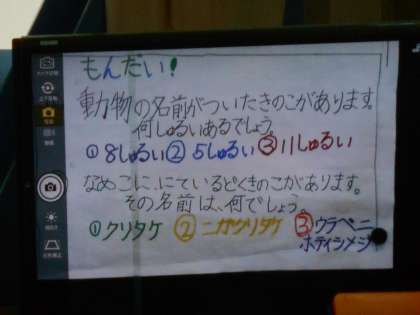 もんだい!
動物の名前がついたきのこがあります。
何しゅるいあるでしょう。
①8しゅるい②5しゅるい③11しゅるい
なめこに、にているどくきのこがあります。
その名前は、何でしょう。
①クリタケ ②ニガクリタケ ③ウラベニ
ホテイシメジ